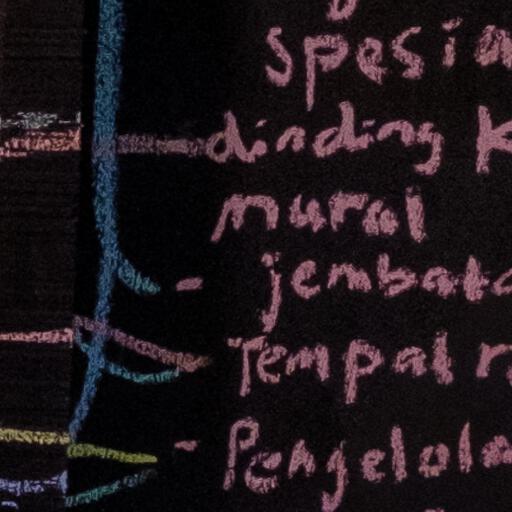 spesia
dinding K
mural
- jembata
Tempal r
- Pengelola